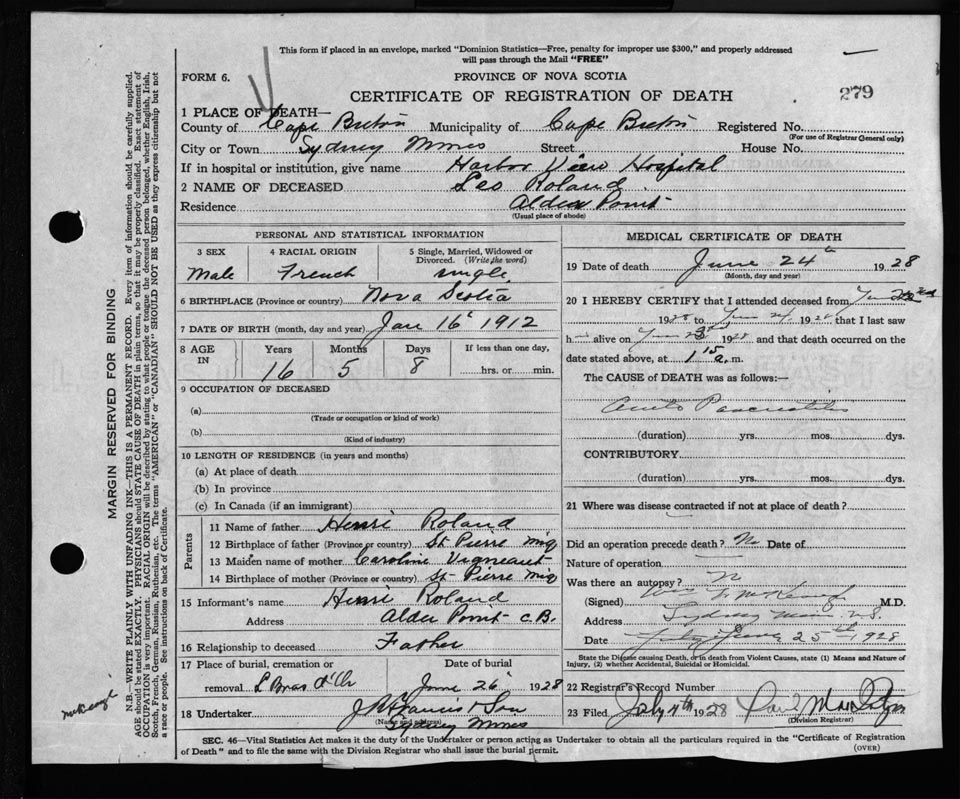 This form if placed in an envelope, marked "Dominion Statistics—Free, penalty for improper use $300," and properly addressed
will pass through the Mail "FREE"
FORM 6.
PROVINCE OF NOVA SCOTIA
CERTIFICATE OF REGISTRATION OF DEATH
279
1 PLACE OF DEATH—
County of Cape Breton Municipality of Cape Breton Registered No.
(For use of Registrar General only)
City or Town Sydney Mines Street House No.
If in hospital or institution, give name Harbor View Hospital
2 NAME OF DECEASED Leo Roland
Residence Alder Point
(Usual place of abode)
PERSONAL AND STATISTICAL INFORMATION
3 SEX 4 RACIAL ORIGIN 5 Single, Married, Widowed or
Divorced. (Write the word)
Male French single
6 BIRTHPLACE (Province or country) Nova Scotia
7 DATE OF BIRTH (month, day and year) Jan 16 1912
8 AGE IN Years Months Days If less than one day,
16 5 8 hrs. or min.
9 OCCUPATION OF DECEASED
(a)
(Trade or occupation or kind of work)
(b)
(Kind of industry)
10 LENGTH OF RESIDENCE (in years and months)
(a) At place of death
(b) In province
(c) In Canada (if an immigrant)
Parents
11 Name of father Henri Roland
12 Birthplace of father (Province or country) St-Pierre Miq
13 Maiden name of mother Caroline Vigneaut
14 Birthplace of mother (Province or country) St-Pierre Miq
15 Informant's name Henri Roland
Address Alder Point C.B.
16 Relationship to deceased Father
17 Place of burial, cremation or Date of burial
removal L Bras d'Or June 26 1928
18 Undertaker J Francis & Son
(Name and address)
Sydney Mines
MEDICAL CERTIFICATE OF DEATH
19 Date of death June 24th 1928
(Month, day and year)
20 I HEREBY CERTIFY that I attended deceased from
1928 to June 24, 1928 that I last saw
h alive on June 23rd 1928 and that death occurred on the
date stated above, at 1 15 a.m.
The CAUSE of DEATH was as follows:—
Acute Pancreatitis
(duration) yrs. mos. dys.
CONTRIBUTORY
(duration) yrs. mos. dys.
21 Where was disease contracted if not at place of death?
Did an operation precede death? No Date of
Nature of operation
Was there an autopsy?
(Signed) M.D.
Address Sydney Mines N.S.
Date June 25th, 1928
State the Disease causing Death, or in death from Violent Causes, state (1) Means and Nature of
Injury, (2) whether Accidental, Suicidal or Homicidal.
22 Registrar's Record Number
23 Filed July 4th 1928 Paul
(Division Registrar)
SEC. 46—Vital Statistics Act makes it the duty of the Undertaker or person acting as Undertaker to obtain all the particulars required in the "Certificate of Registration
of Death" and to file the same with the Division Registrar who shall issue the burial permit.
(OVER)
MARGIN RESERVED FOR BINDING
N.B.—WRITE PLAINLY WITH UNFADING INK—THIS IS A PERMANENT RECORD. Every item of information should be carefully supplied.
AGE should be stated EXACTLY. PHYSICIANS should STATE CAUSE OF DEATH in plain terms, so that it may be properly classified. Exact statement of
OCCUPATION is very important. RACIAL ORIGIN will be described by stating to what people or tongue the deceased person belonged, whether English, Irish,
Scotch, French, German, Russian, Ruthenian, etc. The terms "AMERICAN" or "CANADIAN" SHOULD NOT BE USED as they express citizenship but not
a race or people. See instructions on back of Certificate.